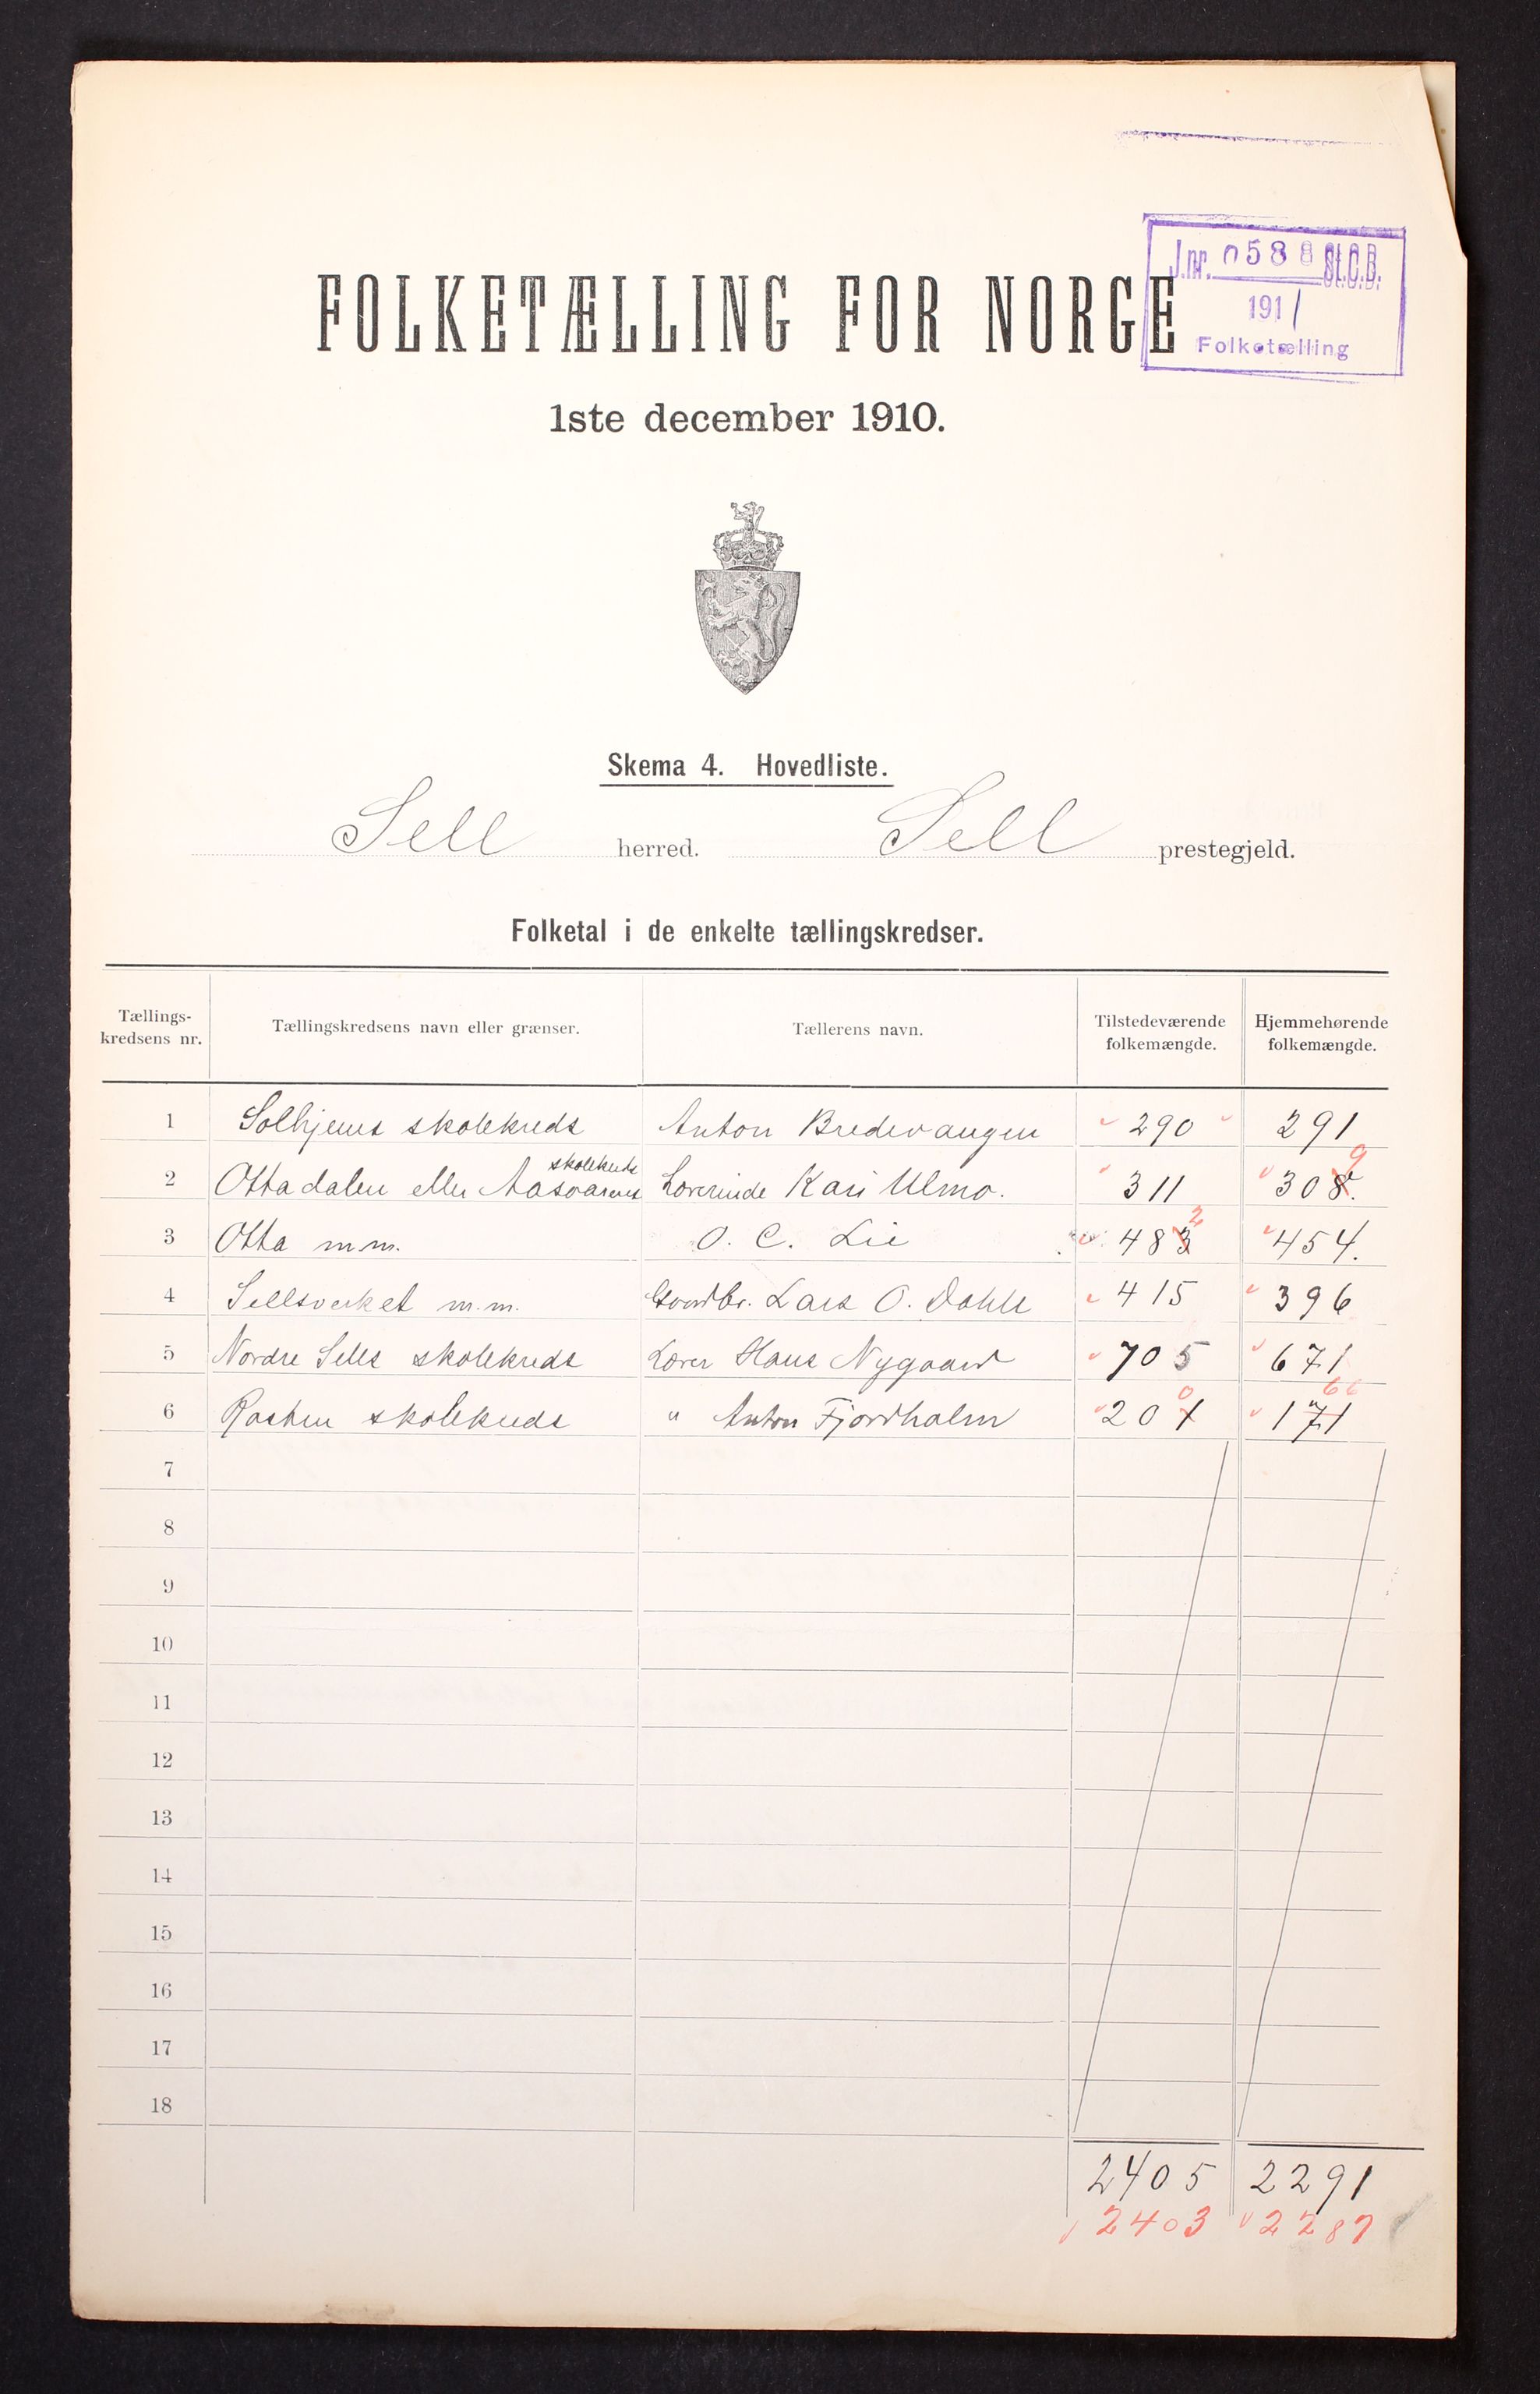 J.nr. 0588 St.C.B.
1911
Folketælling
FOLKETÆLLING FOR NORGE
1ste december 1910.
Skema 4. Hovedliste.
Sell herred. Sell prestegjeld.
Folketal i de enkelte tællingskredser.
Tællings-kredsens nr. Tællingskredsens navn eller grænser. Tællerens navn. Tilstedeværende folkemængde. Hjemmehørende folkemængde.
1 Solhjems skolekreds Anton Bredevangen 290 291
skolekreds 9
2 Ottadalen eller Aasoarens Lærerinde Kari Ulmo. 311 308.
2
3 Otta m.m. O. C. Lie 483 454.
4 Sellsverket m.m. Gaardbr. Lars O. Dahle 415 396
5 Nordre Sells skolekreds Lærer Hans Nygaard 705 671
0 66
6 Rosten skolekreds " Anton Fjordholm 201 171
7
8
9
10
11
12
13
14
15
16
17
18
2405 2291
2403 2287